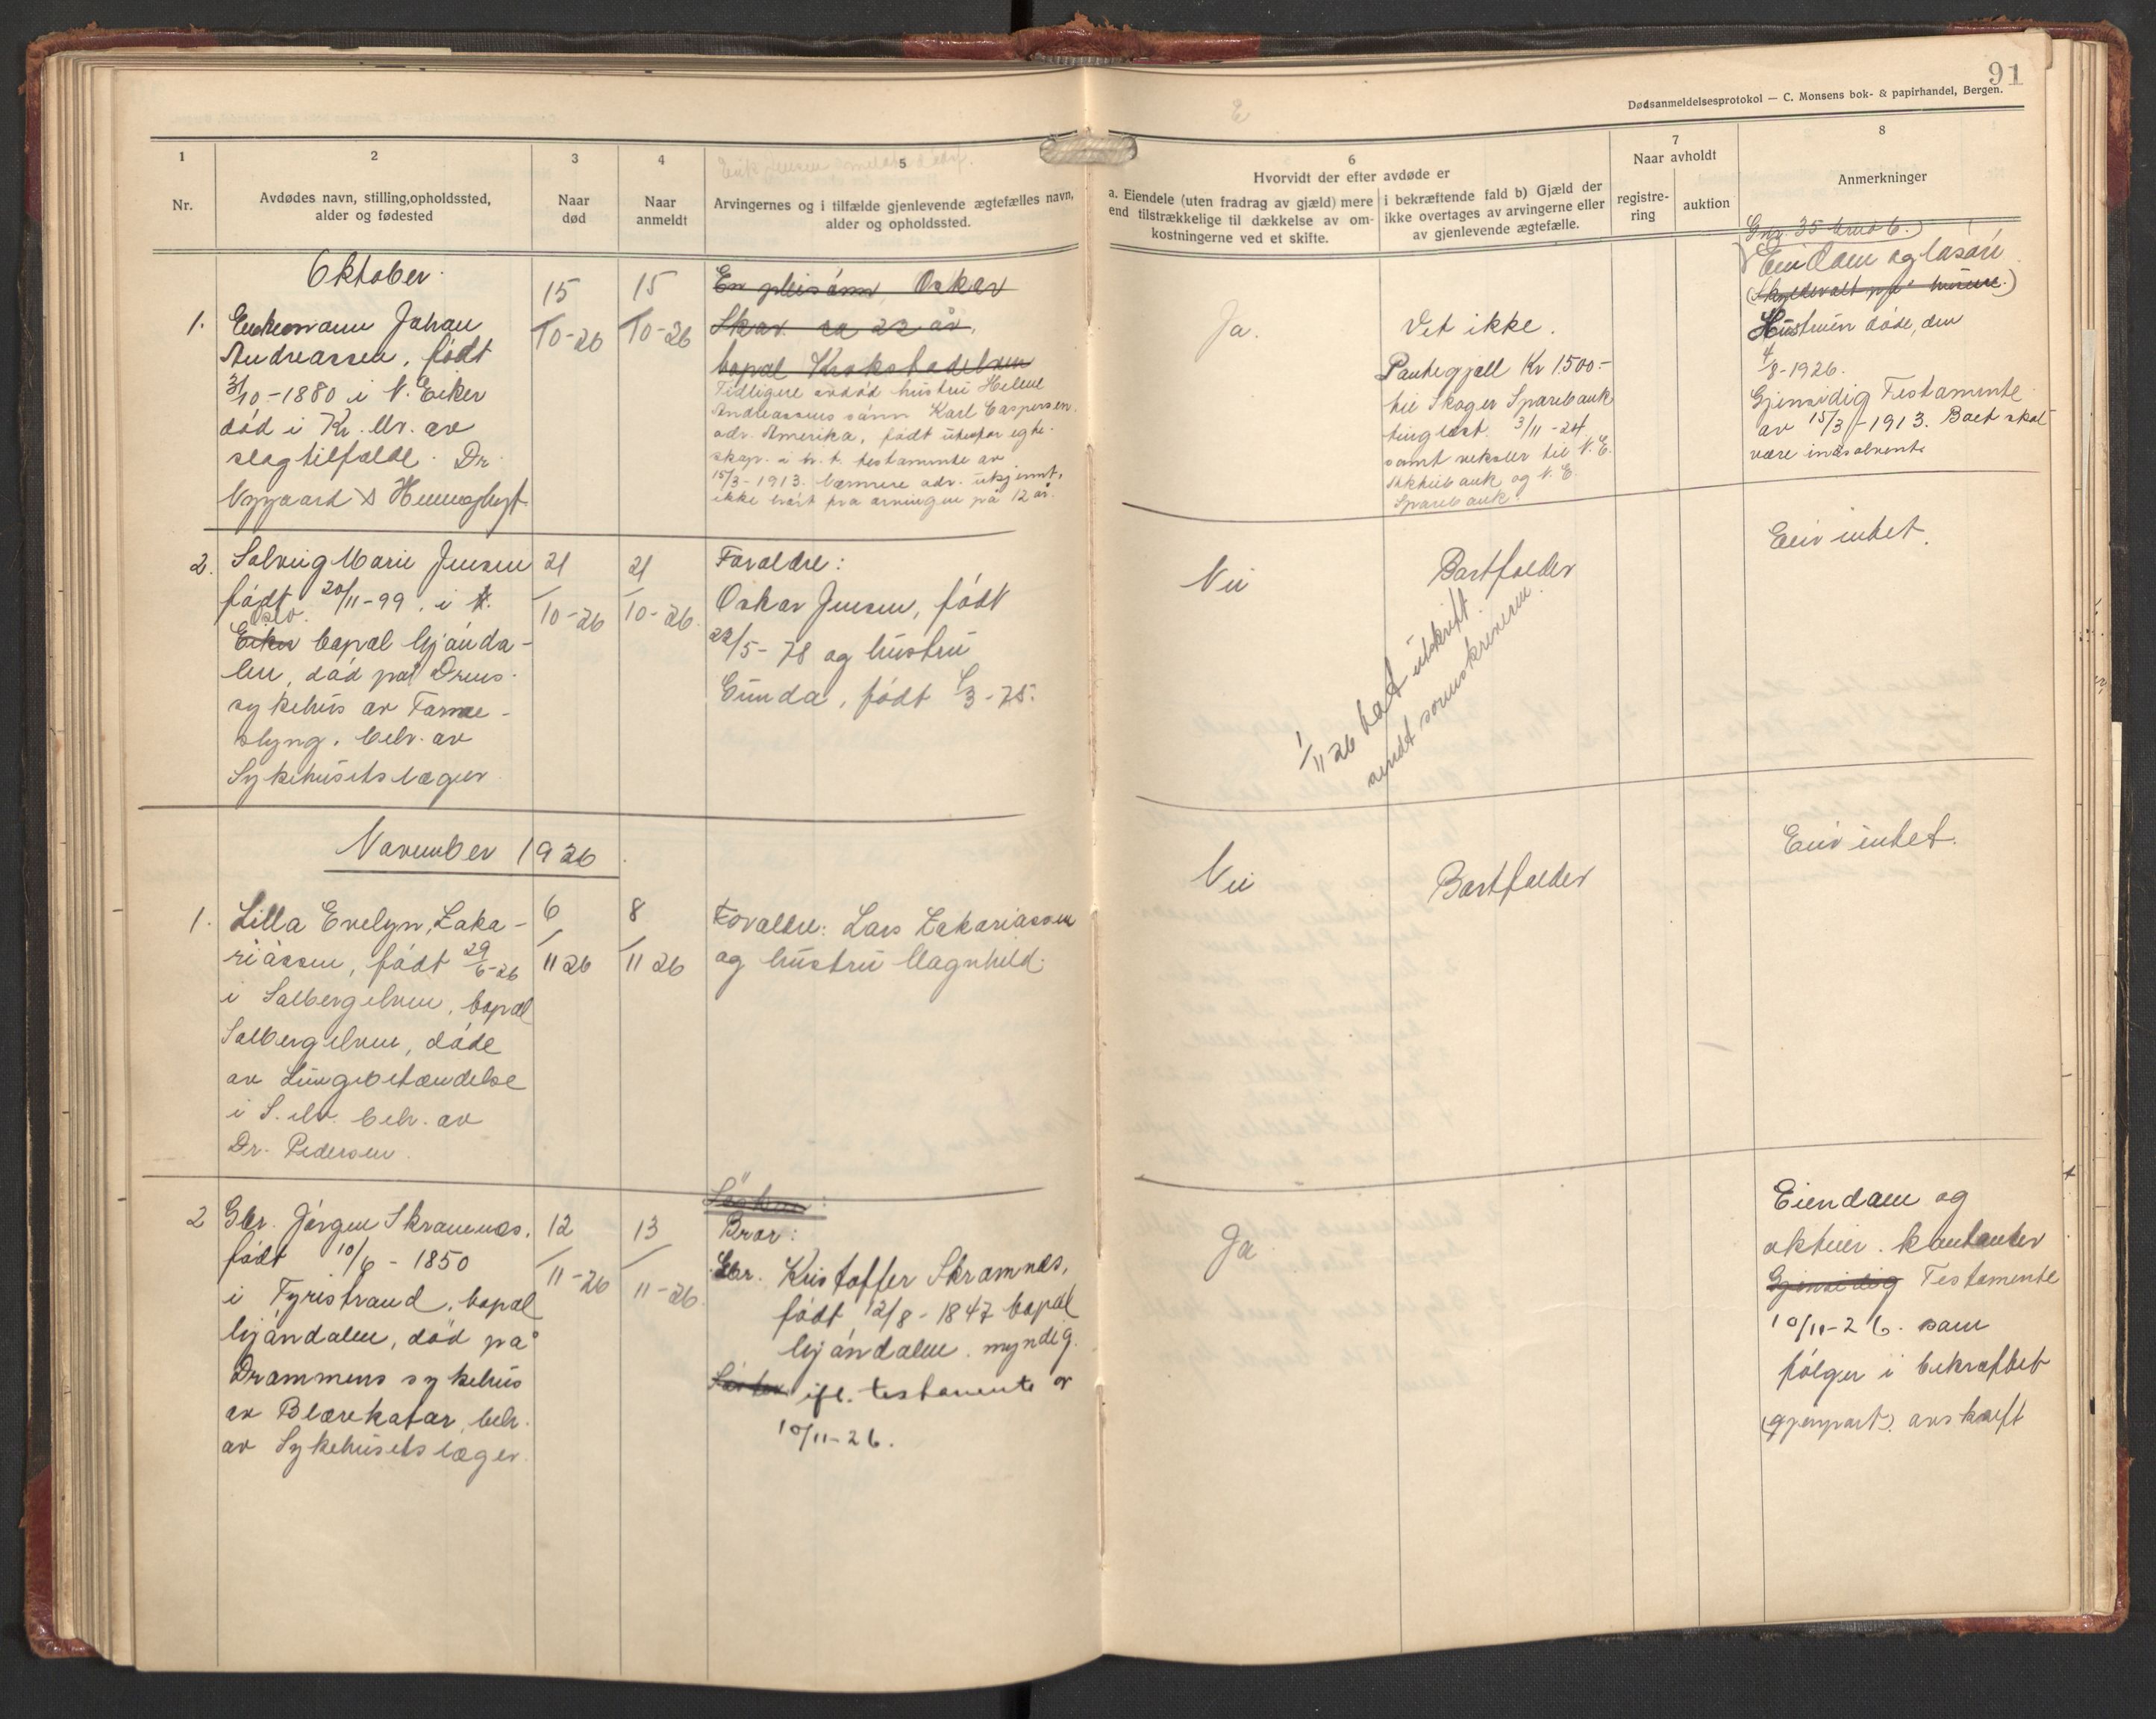 91
Dødsanmeldelsesprotokol — C. Monsens bok- & papirhandel, Bergen.
1
Nr.
2
Avdødes navn, stilling, opholdssted,
alder og fødested
3
Naar
død
4
Naar
anmeldt
5
Arvingernes og i tilfælde gjenlevende ægtefælles navn,
alder og opholdssted.
6
Hvorvidt der efter avdøde er
a. Eiendele (uten fradrag av gjæld) mere
end tilstrækkelige til dækkelse av om-
kostningerne ved et skifte.
i bekræftende fald b) Gjæld der
ikke overtages av arvingerne eller
av gjenlevende ægtefælle.
7
Naar avholdt
registre-
ring
auktion
8
Anmerkninger
Oktober
1.
Enkemann Johan
Andreassen, født
3/10-1880 i N. Eiker
død i Kr. elv. av
slagtilfælde. Dr.
15
10-26
15
10-26
En pleisønn, Oskar
Skar ca 22 år,
bopæl Krokstadelven
Tidligere avdød hustru Helene
Andreassens sønn Karl Caspersen,
adr. Amerika, født utenfor egte-
skap. i h. t. testamente av
15/3-1913. Nærmere adr. ukjennt,
ikke hørt fra arvingen på 12 år.
Ja.
Vet ikke.
Pantegjæll Kr 1500.-
til Skoger Sparebank
tinglæst 3/11-24
samt veksler til N. E.
Sparebank.
Gnr. 35 bruk 6.
Eiendom og løsøre
Hustruen døde, den
4/8-1926.
Gjensidig Testamente
av 15/3-1913. Boet skal
være insolvent.
2.
Solveig Marie Jensen
født 20/11-99, i N.
Oslo.
Eiker bopæl Mjønda-
len, død på Drms.
sykehus av Tarme-
slyng, beh. av
Sykehusets læger
21
10-26
21
10-26.
Forældre:
Oskar Jensen, født
22/5-78 og hustru
Gunda, født
Nei
Bortfalder
1/11 26 hat utskrift.
sendt sorenskriveren.
Eier intet.
November 1926
1.
Lilla Evelyn, Zaka-
riassen, født 29/6-26
i Solbergelven, bopæl
Solbergelven, døde
av Lungebetændelse
i S. elv. beh. av
Dr. Pedersen.
6
11 26
8
11 26
Forældre: Lars Zakariassen
og hustru Magnhild.
Nei
Bortfalder
Eier intet.
2
Gbr. Jørgen Skramnæs,
født 10/6-1850
i Tyristrand, bopæl
Mjøndalen, død på
Drammens sykehus
av Blærekatar, beh.
av Sykehusets læger.
12
11-26
13
11-26.
Søsken:
Bror:
Gbr. Kristoffer Skramnæs,
født 12/8-1847 bopæl
Mjøndalen. myndig.
ifl. testamente av
10/11-26.
Ja
Eiendom og
aktier. kontanter
Gjensidig Testamente
10/11-26. som
følger i bekræftet
(gjenpart). avskrift